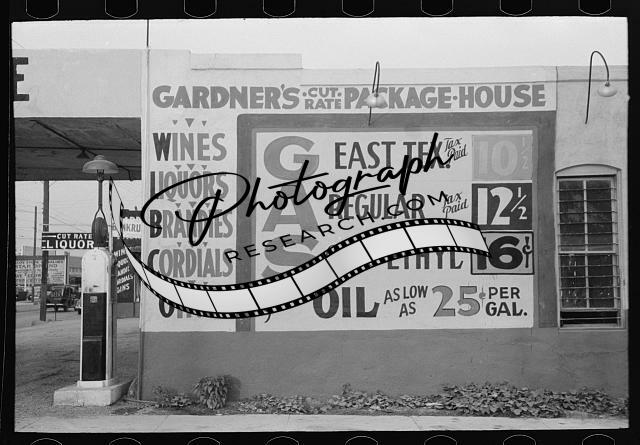 E
GARDNER'S · CUT RATE PACKAGE · HOUSE
WINES
LIQUORS
BRANDIES
CORDIALS
GAS
EAST TEX Tax Paid 10 1/2
REGULAR Tax paid 12 1/2
ETHYL 16¢
OIL AS LOW AS 25¢ PER GAL.
CUT RATE
LIQUOR
Photograph
RESEARCH.COM